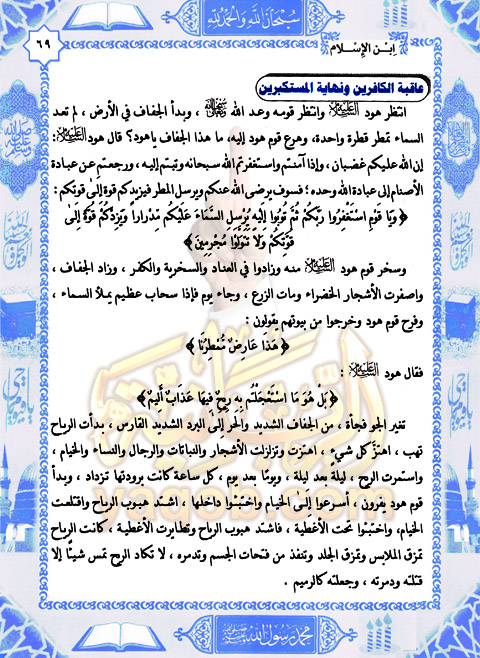 سبحان الله والحمد لله
ابن الإسلام
٦٩
عاقبة الكافرين ونهاية المستكبرين
انتظر هود عليه السلام وانتظر قومه وعد الله ، وبدأ الجفاف في الأرض ، لم تعد
السماء تمطر قطرة واحدة، وهرع قوم هود إليه، ما هذا الجفاف ياهود؟ قال هود عليه السلام:
إن الله عليكم غضبان ، وإذا آمنتم واستغفرتم الله سبحانه وتبتم إليه ، ورجعتم عن عبادة
الأصنام إلى عبادة الله وحده ؛ فسوف يرضى الله عنكم ويرسل المطر فيزيدكم قوة إلى قوتكم :
﴿ وَيَا قَوْمِ اسْتَغْفِرُوا رَبَّكُمْ ثُمَّ تُوبُوا إِلَيْهِ يُرْسِلِ السَّمَاءَ عَلَيْكُم مِّدْرَاراً وَيَزِدْكُمْ قُوَّةً إِلَىٰ
قُوَّتِكُمْ وَلَا تَتَوَلَّوْا مُجْرِمِينَ ﴾
وسخر قوم هود عليه السلام منه وزادوا في العناد والسخرية والكفر ، وزاد الجفاف ،
واصفرت الأشجار الخضراء ومات الزرع ، وجاء يوم فإذا سحاب عظيم يملأ السماء ،
وفرح قوم هود وخرجوا من بيوتهم يقولون :
﴿ هَذَا عَارِضٌ مُّمْطِرُنَا ﴾
فقال هود عليه السلام :
﴿ بَلْ هُوَ مَا اسْتَعْجَلْتُم بِهِ رِيحٌ فِيهَا عَذَابٌ أَلِيمٌ ﴾
تغير الجو فجأة ، من الجفاف الشديد والحر إلى البرد الشديد القارس ، بدأت الرياح
تهب ، اهتزَّ كل شيء ، اهتزت وتزلزلت الأشجار والنباتات والرجال والنساء والخيام ،
واستمرت الريح ، ليلةً بعد ليلة ، ويومًا بعد يوم ، كل ساعة كانت برودتها تزداد ، وبدأ
قوم هود يفرون ، أسرعوا إلى الخيام واختبئوا داخلها ، اشتد هبوب الرياح واقتلعت
الخيام، واختبئوا تحت الأغطية ، فاشتد هبوب الرياح وتطايرت الأغطية ، كانت الرياح
تمزق الملابس وتمزق الجلد وتنفذ من فتحات الجسم وتدمره ، لا تكاد الريح تمس شيئًا إلا
قتلته ودمرته ، وجعلته كالرميم .
محمد رسول الله